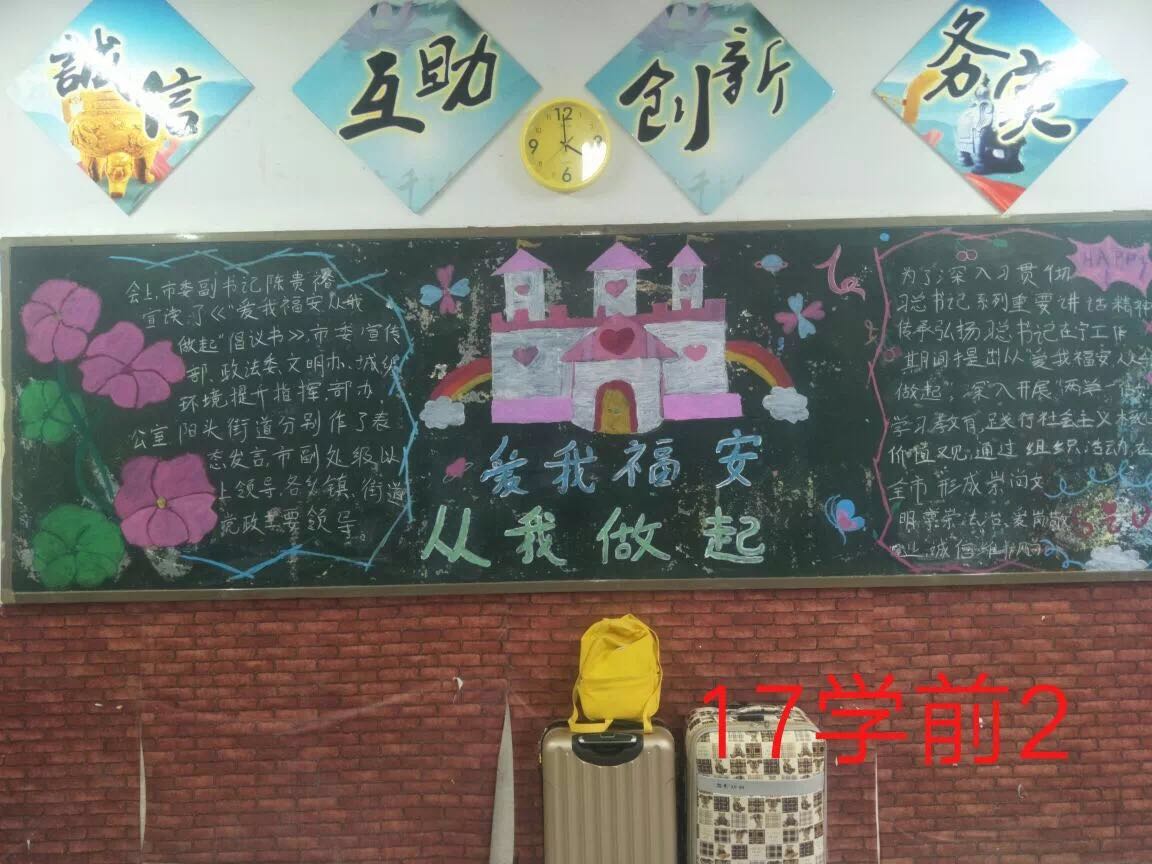 誠信
互助
创新
务实
12
9
3
6
会上,市委副书记陈贵
宣读了《“爱我福安从我
做起”倡议书》,市委宣传
部、政法委文明办、城纸
环境提升指挥部办、
公室阳头街道分别作了表
态发言,市副处级以
上领导、各乡镇、街道
党政主要领导。
爱我福安
从我做起
HAPPY
为了深入习贯彻
习总书记系列重要讲话精神
传承弘扬习总书记在宁工作
期间提出从“爱我福安从
做起”,深入开展“两学一
学习教育,践行社会主义核
价值观,通过组织活动,在
全市形成崇尚文
明,繁荣法治,爱岗敬
业,诚信
17学前2